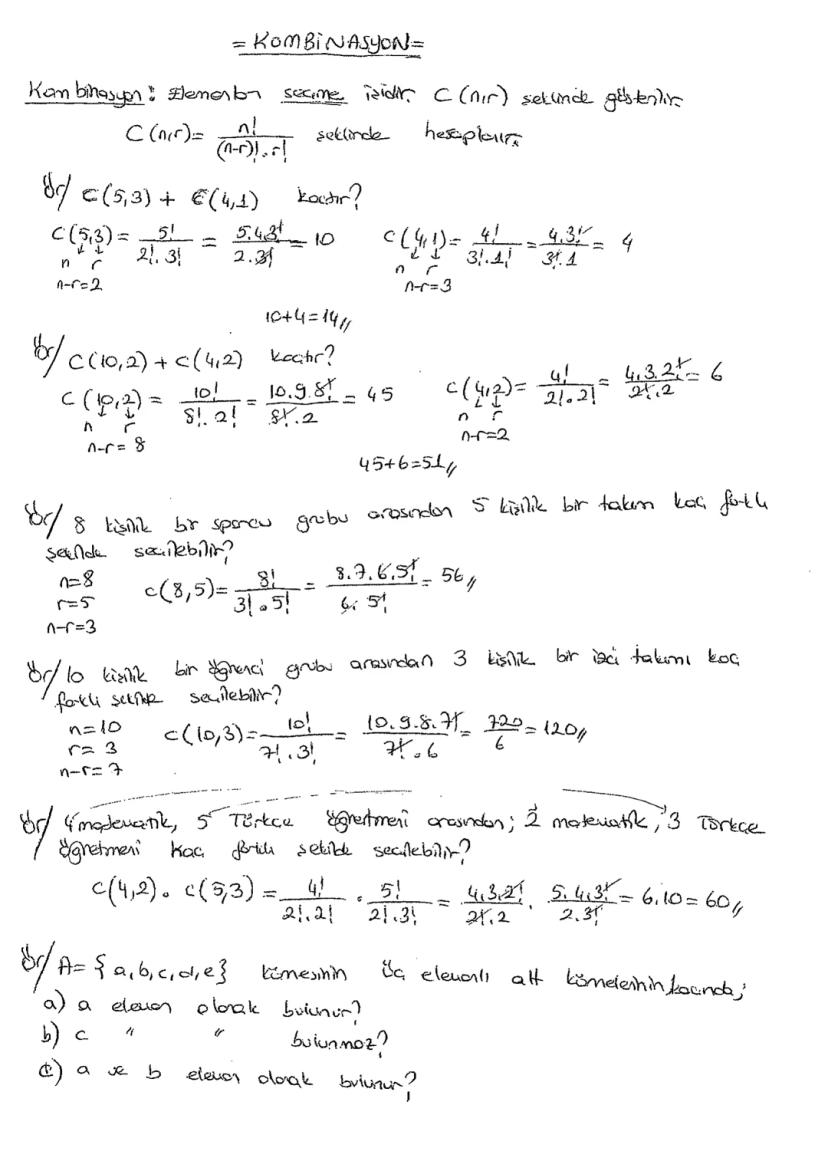 = KOMBİNASYON =
Kombinasyon: Elemanları seçme işidir. C(n,r) şeklinde gösterilir.
C(n,r) = n! / (n-r)!.r! şeklinde hesaplanır.
Ör/ C(5,3) + C(4,1) kaçtır?
C(5,3) = 5! / 2!.3! = 5.4.3! / 2.3! = 10 C(4,1) = 4! / 3!.1! = 4.3! / 3!.1 = 4
n r n r
n-r=2 n-r=3
10+4=14//
Ör/ C(10,2) + C(4,2) kaçtır?
C(10,2) = 10! / 8!.2! = 10.9.8! / 8!.2 = 45 C(4,2) = 4! / 2!.2! = 4.3.2! / 2!.2 = 6
n r n r
n-r=8 n-r=2
45+6=51//
Ör/ 8 kişilik bir sporcu grubu arasından 5 kişilik bir takım kaç farklı
şekilde seçilebilir?
n=8
r=5 C(8,5) = 8! / 3!.5! = 8.7.6.5! / 6.5! = 56//
n-r=3
Ör/ 10 kişilik bir öğrenci grubu arasından 3 kişilik bir takımı kaç
farklı şekilde seçilebilir?
n=10
r=3 C(10,3) = 10! / 7!.3! = 10.9.8.7! / 7!.6 = 720 / 6 = 120//
n-r=7
Ör/ 4 matematik, 5 Türkçe öğretmeni arasından; 2 matematik, 3 Türkçe
öğretmeni kaç farklı şekilde seçilebilir?
C(4,2) . C(5,3) = 4! / 2!.2! . 5! / 2!.3! = 4.3.2! / 2!.2 . 5.4.3! / 2.3! = 6.10 = 60//
Ör/ A = {a,b,c,d,e} kümesinin üç elemanlı alt kümelerinin kaçında;
a) a eleman olarak bulunur?
b) c " " bulunmaz?
c) a ve b eleman olarak bulunur?